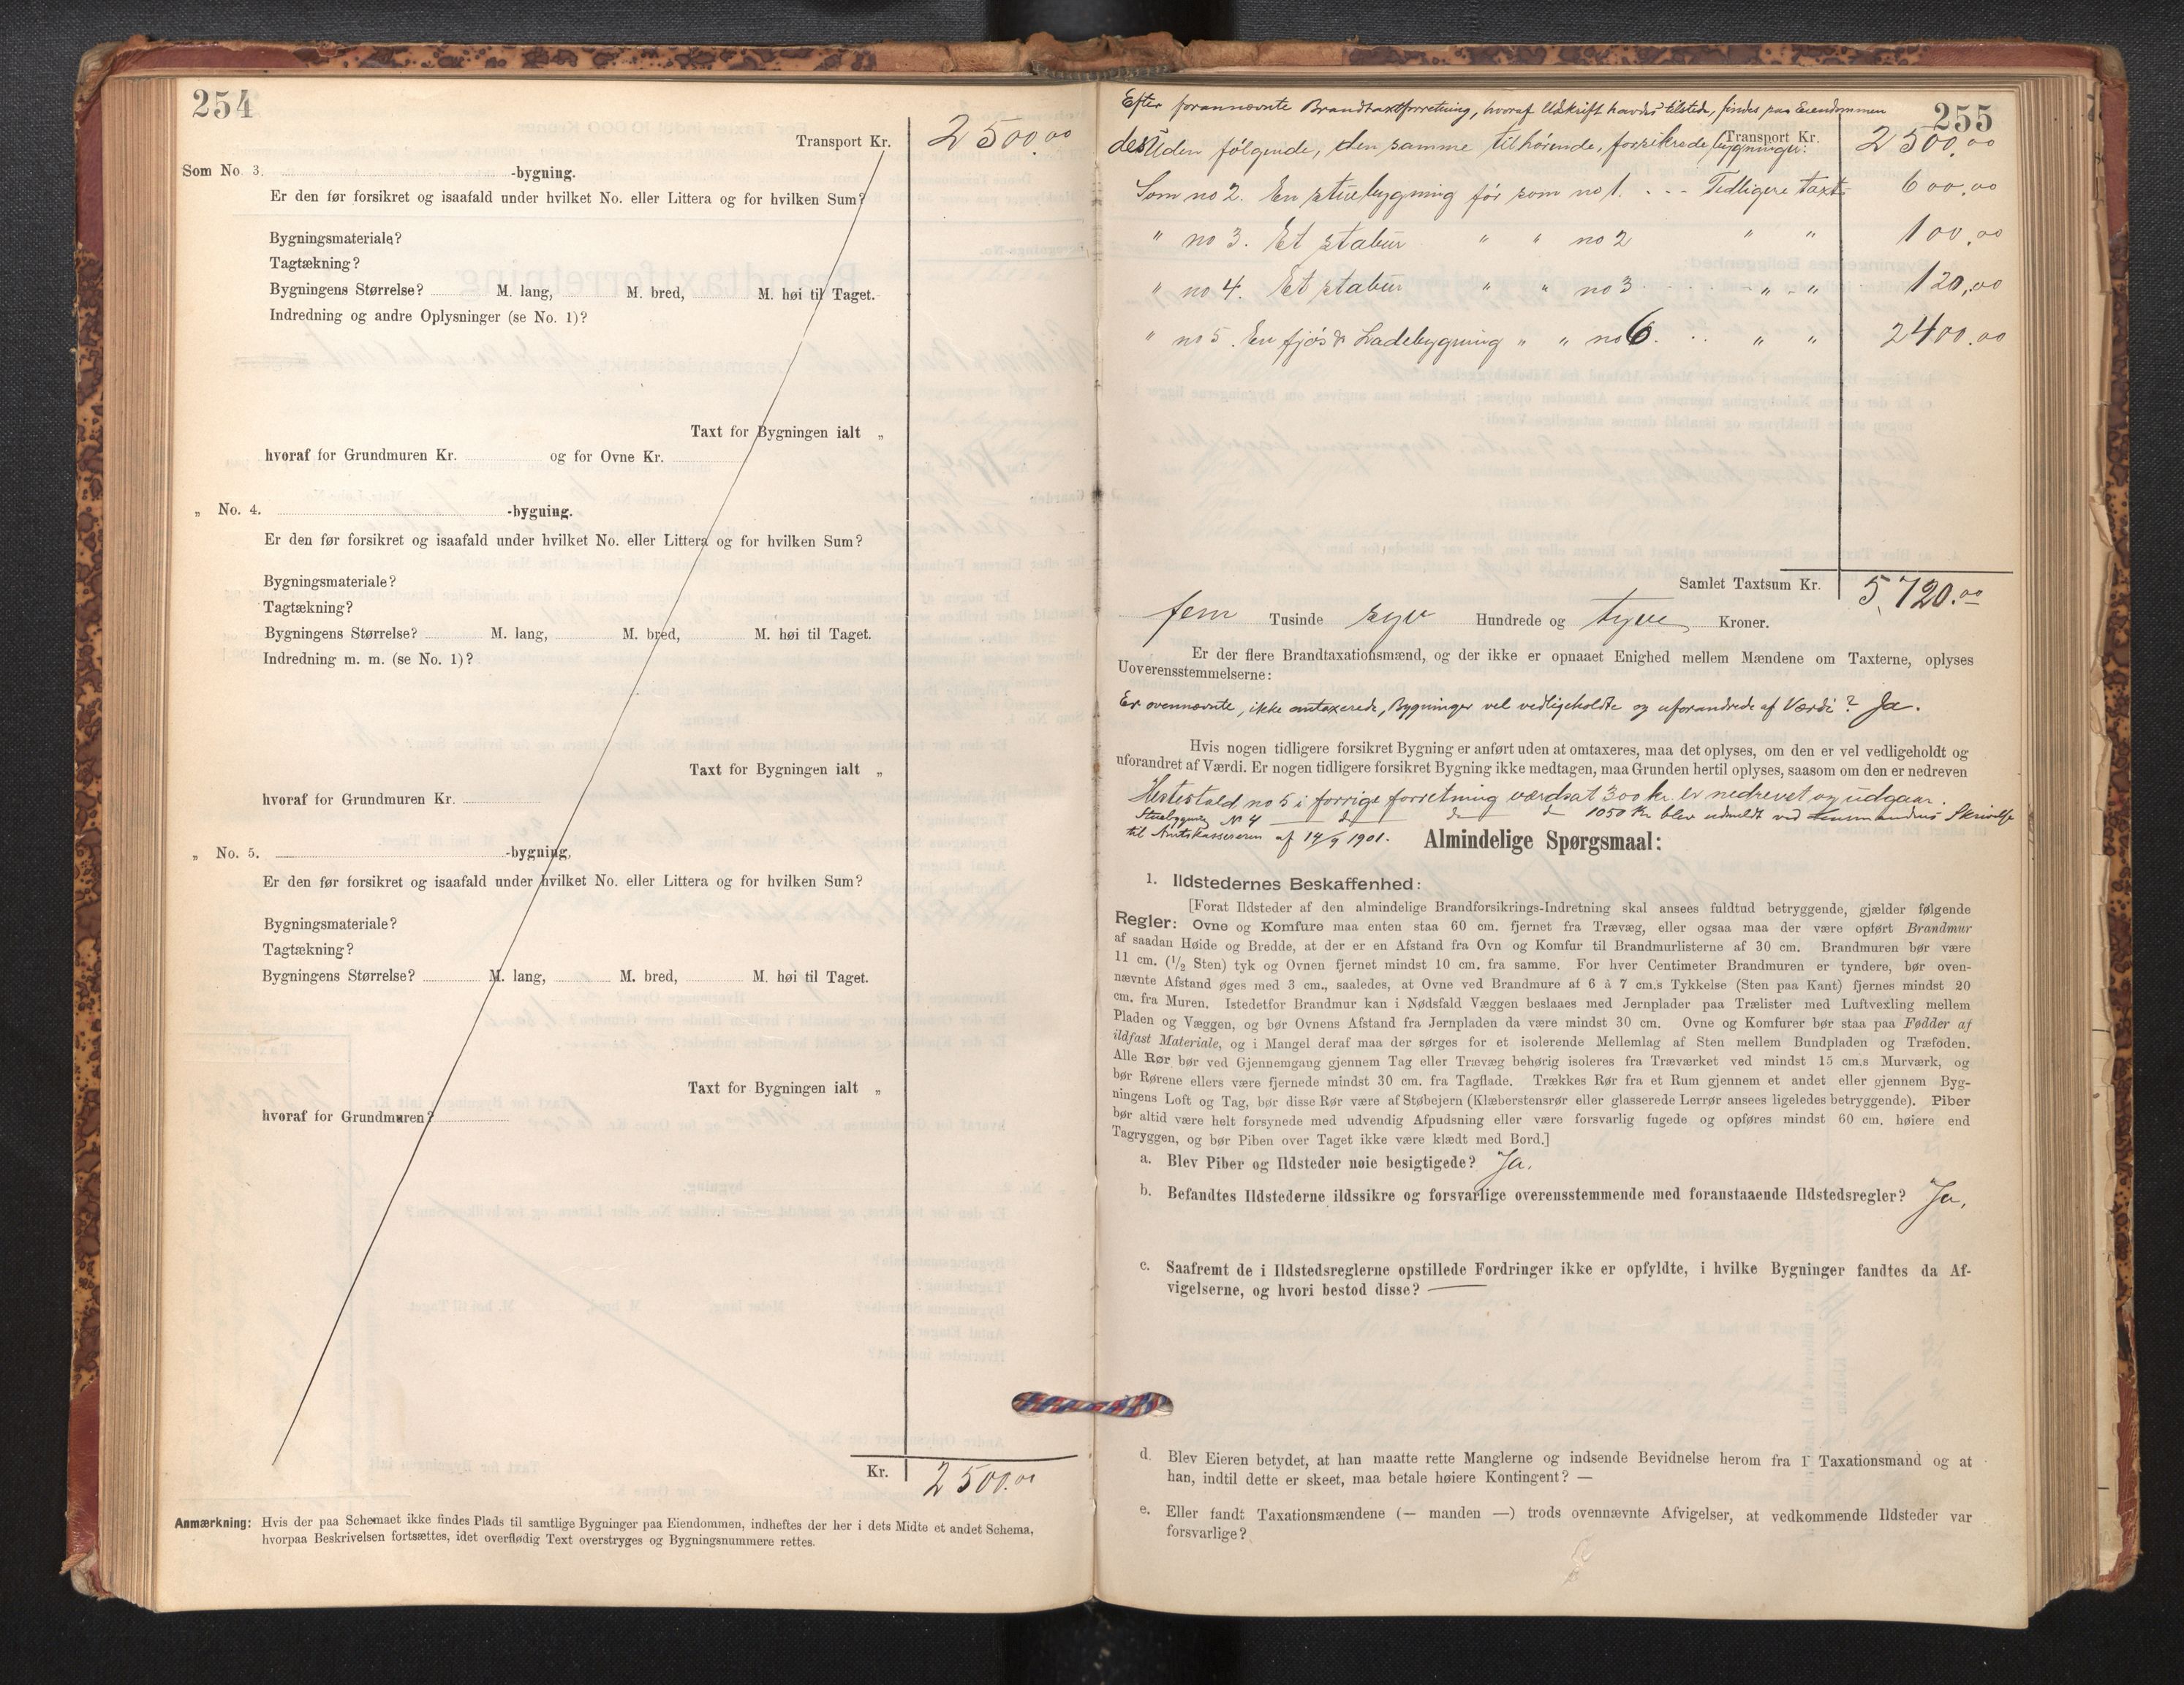 254
Transport Kr. 2500.00
Som No 3. -bygning.
Er den før forsikret og isaafald under hvilket No. eller Littera og for hvilken Sum?
Bygningsmateriale?
Tagtækning?
Bygningens Størrelse? M. lang, M. bred, M. høi til Taget.
Indredning og andre Oplysninger (se No. 1)?
Taxt for Bygningen ialt „
hvoraf for Grundmuren Kr. og for Ovne Kr.
„ No. 4. -bygning.
Er den før forsikret og isaafald under hvilket No. eller Littera og for hvilken Sum?
Bygningsmateriale?
Tagtækning?
Bygningens Størrelse? M. lang, M. bred, M. høi til Taget.
Indredning m. m. (se No. 1)?
Taxt for Bygningen ialt „
hvoraf for Grundmuren Kr.
„ No. 5. -bygning,
Er den før forsikret og isaafald under hvilket No. eller Littera og for hvilken Sum?
Bygningsmateriale?
Tagtækning?
Bygningens Størrelse? M. lang, M. bred, M. høi til Taget.
Taxt for Bygningen ialt „
hvoraf for Grundmuren?
Kr. 2500.00
Anmærkning: Hvis der paa Schemaet ikke findes Plads til samtlige Bygninger paa Eiendommen, indheftes der her i dets Midte et andet Schema,
hvorpaa Beskrivelsen fortsættes, idet overflødig Text overstryges og Bygningsnummere rettes.
Efter forannævnte Brandtaxtforretning, hvoraf Udskrift havdes tilstede, findes paa Eiendommen
255
Transport Kr.
desuden følgende, den samme tilhørende, forsikrede bygninger: 2500.00
Som no 2. En stuebygning før som no 1. . - - Tidligere taxt 600,00
" no 3. Et stabur " " no 2 " " 100,00
" no 4. Et stabur " " no 3 - " - " 120,00
" no 5. En fjøs & Ladebygning " " no 6. .. " " 2400.00
Samlet Taxtsum Kr. 5720.00
fem Tusinde syv Hundrede og tyve Kroner.
Er der flere Brandtaxationsmænd, og der ikke er opnaaet Enighed mellem Mændene om Taxterne, oplyses
Uoverensstemmelserne:
Er ovennævnte, ikke omtaxerede, Bygninger vel vedligeholdte og uforandrede af Værdi? Ja.
Hvis nogen tidligere forsikret Bygning er anført uden at omtaxeres, maa det oplyses, om den er vel vedligeholdt og
uforandret af Værdi. Er nogen tidligere forsikret Bygning ikke medtagen, maa Grunden hertil oplyses, saasom om den er nedreven
Hestestald no 5 i forrige forretning værdsat 300 kr. er nedrevet og udgaar.
Stuebygning No 4 — d — d 1050 Kr blev udmeldt ved Lensmandens Skrivelse
til Amtskassereren af 14/9 1901.
Almindelige Spørgsmaal:
1. Ildstedernes Beskaffenhed:
[Forat Ildsteder af den almindelige Brandforsikrings-Indretning skal ansees fuldtud betryggende, gjælder følgende
Regler: Ovne og Komfure maa enten staa 60 cm. fjernet fra Trævæg, eller ogsaa maa der være opført Brandmur
af saadan Høide og Bredde, at der er en Afstand fra Ovn og Komfur til Brandmurlisterne af 30 cm. Brandmuren bør være
11 cm. (1/2 Sten) tyk og Ovnen fjernet mindst 10 cm. fra samme. For hver Centimeter Brandmuren er tyndere, bør oven-
nævnte Afstand øges med 3 cm., saaledes, at Ovne ved Brandmure af 6 à 7 cm.s Tykkelse (Sten paa Kant) fjernes mindst 20
cm. fra Muren. Istedetfor Brandmur kan i Nødsfald Væggen beslaaes med Jernplader paa Trælister med Luftvexling mellem
Pladen og Væggen, og bør Ovnens Afstand fra Jernpladen da være mindst 30 cm. Ovne og Komfurer bør staa paa Fødder af
ildfast Materiale, og i Mangel deraf maa der sørges for et isolerende Mellemlag af Sten mellem Bundpladen og Træfoden.
Alle Rør bør ved Gjennemgang gjennem Tag eller Trævæg behørig isoleres fra Træværket ved mindst 15 cm.s Murværk, og
bør Rørene ellers være fjernede mindst 30 cm. fra Tagflade. Trækkes Rør fra et Rum gjennem et andet eller gjennem Byg-
ningens Loft og Tag, bør disse Rør være af Støbejern (Klæberstensrør eller glasserede Lerrør ansees ligeledes betryggende). Piber
bør altid være helt forsynede med udvendig Afpudsning eller være forsvarlig fugede og opføres mindst 60 cm. høiere end
Tagryggen, og bør Piben over Taget ikke være klædt med Bord.]
a. Blev Piber og Ildsteder nøie besigtigede? Ja.
b. Befandtes Ildstederne ildssikre og forsvarlige overensstemmende med foranstaaende Ildstedsregler? Ja,
c. Saafremt de i Ildstedsreglerne opstillede Fordringer ikke er opfyldte, i hvilke Bygninger fandtes da Af-
vigelserne, og hvori bestod disse? —
d. Blev Eieren betydet, at han maatte rette Manglerne og indsende Bevidnelse herom fra 1 Taxationsmand og at
han, indtil dette er skeet, maa betale høiere Kontingent? —
e. Eller fandt Taxationsmændene (— manden —) trods ovennævnte Afvigelser, at vedkommende Ildsteder var
forsvarlige?